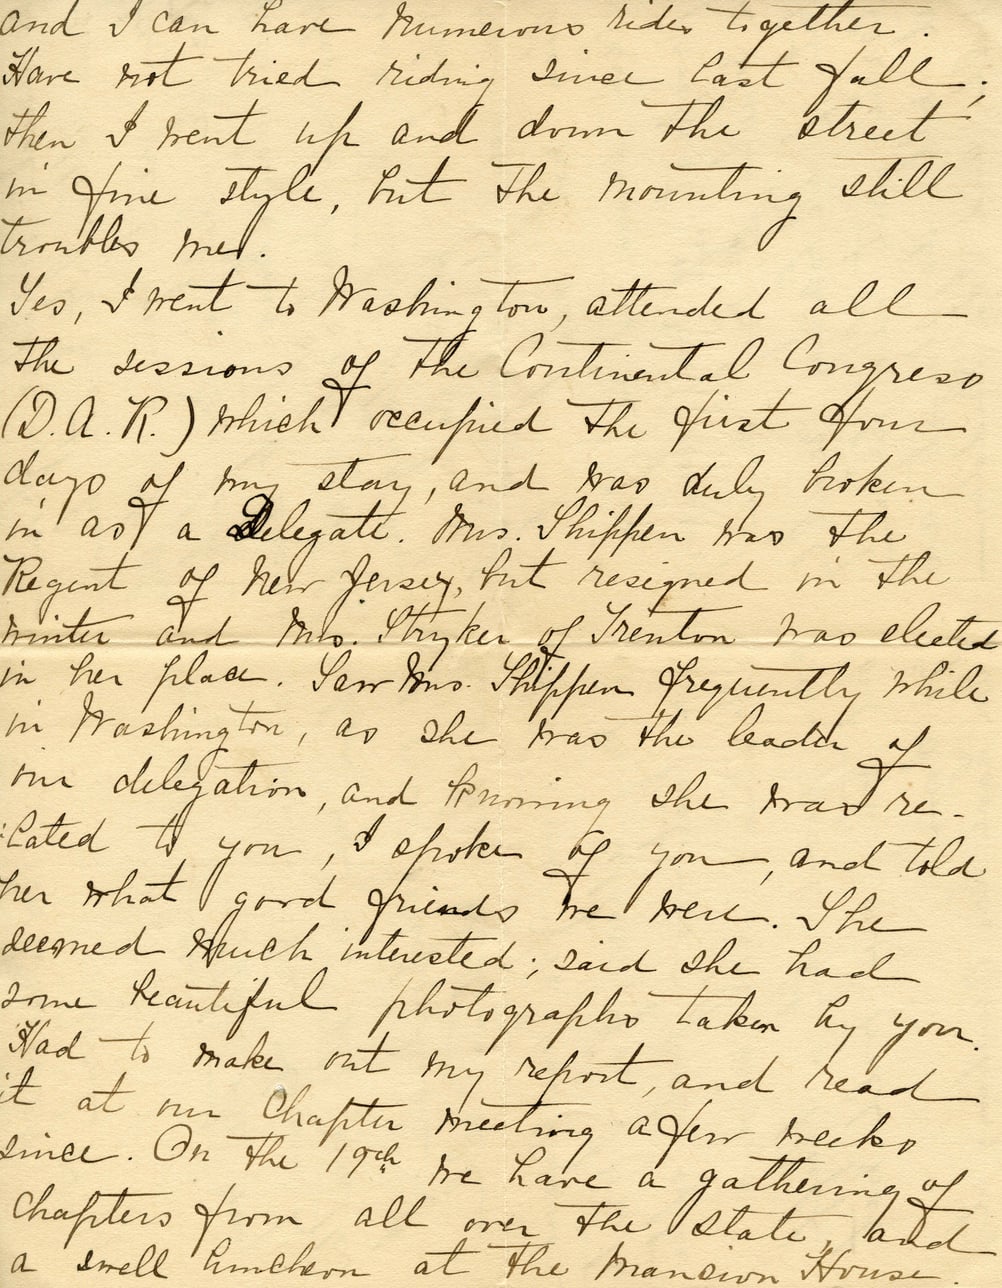 and I can have numerous rides together.
Have not tried riding since last fall;
then I went up and down the street
in fine style, but the mounting still
troubles me.
Yes, I went to Washington, attended all
the sessions of the Continental Congress
(D.A.R.) which occupied the first four
days of my stay, and was duly broken
in as a Delegate. Mrs. Shippen was the
Regent of New Jersey, but resigned in the
winter and Mrs. Stryker of Trenton was elected
in her place. Saw Mrs. Shippen frequently while
in Washington, as she was the leader of
our delegation, and knowing she was re-
lated to you, I spoke of you, and told
her what good friends we were. She
seemed much interested; said she had
some beautiful photographs taken by you.
Had to make out my report, and read
it at our Chapter meeting a few weeks
since. On the 19th we have a gathering of
Chapters from all over the state, and
a swell luncheon at the Mansion House